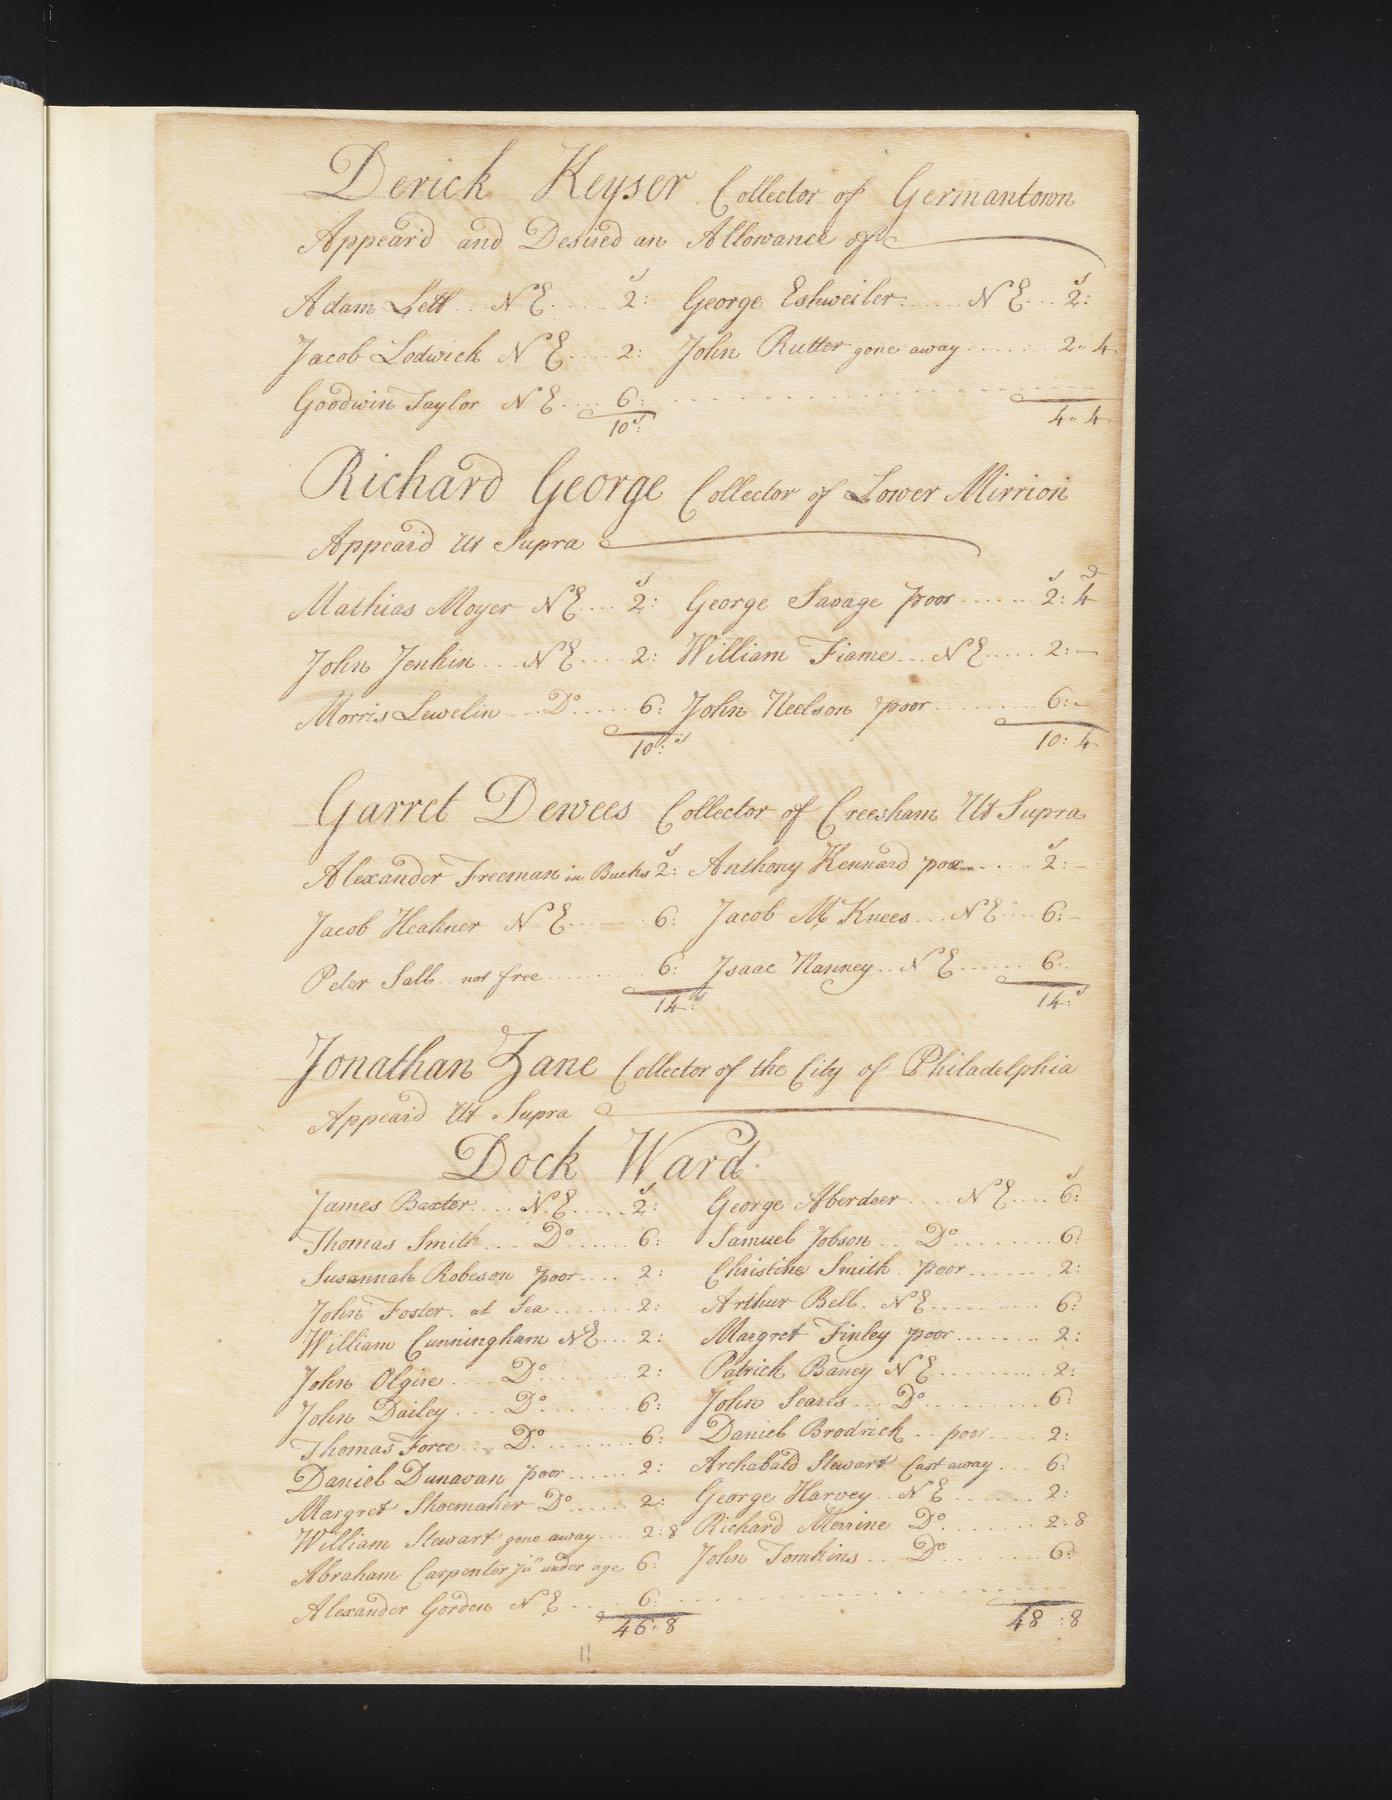 Derick Keyser Collector of Germantown
Appear'd and Desired an Allowance of
Adam Lett .. N E .... 2: George Eshweiler ..... N E ... 2:
Jacob Lodwick N E .... 2: John Rutter gone away ..... 2.. 4
Goodwin Taylor N E .... 6:
10s: 4.. 4
Richard George Collector of Lower Mirrion
Appeard Ut Supra
s s d
Mathias Moyer N E .... 2: George Savage poor ...... 2: 4
John Jenkin ... N E .... 2: William Fiame ... N E ..... 2: —
Morris Lewelin ... Do ..... 6: John Neelson poor ........ 6: -
10: s 10: 4
Garret Dewees Collector of Creesham Ut Supra
Alexander Freeman in Bucks 2: Anthony Kennard poor ..... 2: -
Jacob Heahner N E ..... 6: Jacob Mc Knees ... N E ... 6: -
Peter Salb .. not free ........ 6: Isaac Nanney .. N E ...... 6:
14: s 14: s
Jonathan Zane Collector of the City of Philadelphia
Appeard Ut Supra
Dock Ward
James Baxter .... N E ..... 2: George Aberdeer .... N E .... 6:
Thomas Smith ... Do ...... 6: Samuel Jobson ... Do ........ 6:
Susannah Robeson poor .... 2: Christine Smith . poor ....... 2:
John Foster . at Sea ....... 2: Arthur Bell . N E ......... 6:
William Cunningham N E ... 2: Margret Finley poor ....... 2:
John Olgire .... Do ....... 2: Patrick Baney N E ......... 2:
John Dailey .... Do ....... 6: John Seares ... Do ......... 6:
Thomas Force ... Do ........ 6: Daniel Brodrick .. poor .... 2:
Daniel Dunavan poor ...... 2: Archabald Stewart Cast away ... 6:
Margret Shoemaker Do ..... 2: George Harvey .. N E ...... 2:
William Stewart gone away .... 2: 8 Richard Merrine Do ....... 2: 8
Abraham Carpenter Jur under age 6: John Tomkins ... Do ....... 6:
Alexander Gorden N E .... 6:
46: 8 48 : 8
11